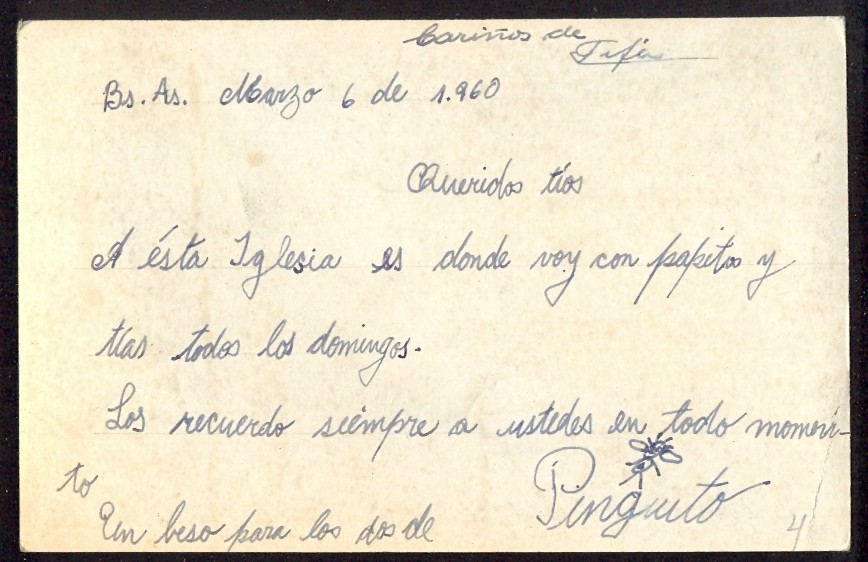 Cariños de
Fifa
Bs. As. Marzo 6 de 1.960
Queridos tíos
A ésta Iglesia es donde voy con papitos y
tías todos los domingos.
Los recuerdo siémpre a ustedes en todo momen-
to
Un beso para los dos de
Pinguito
4